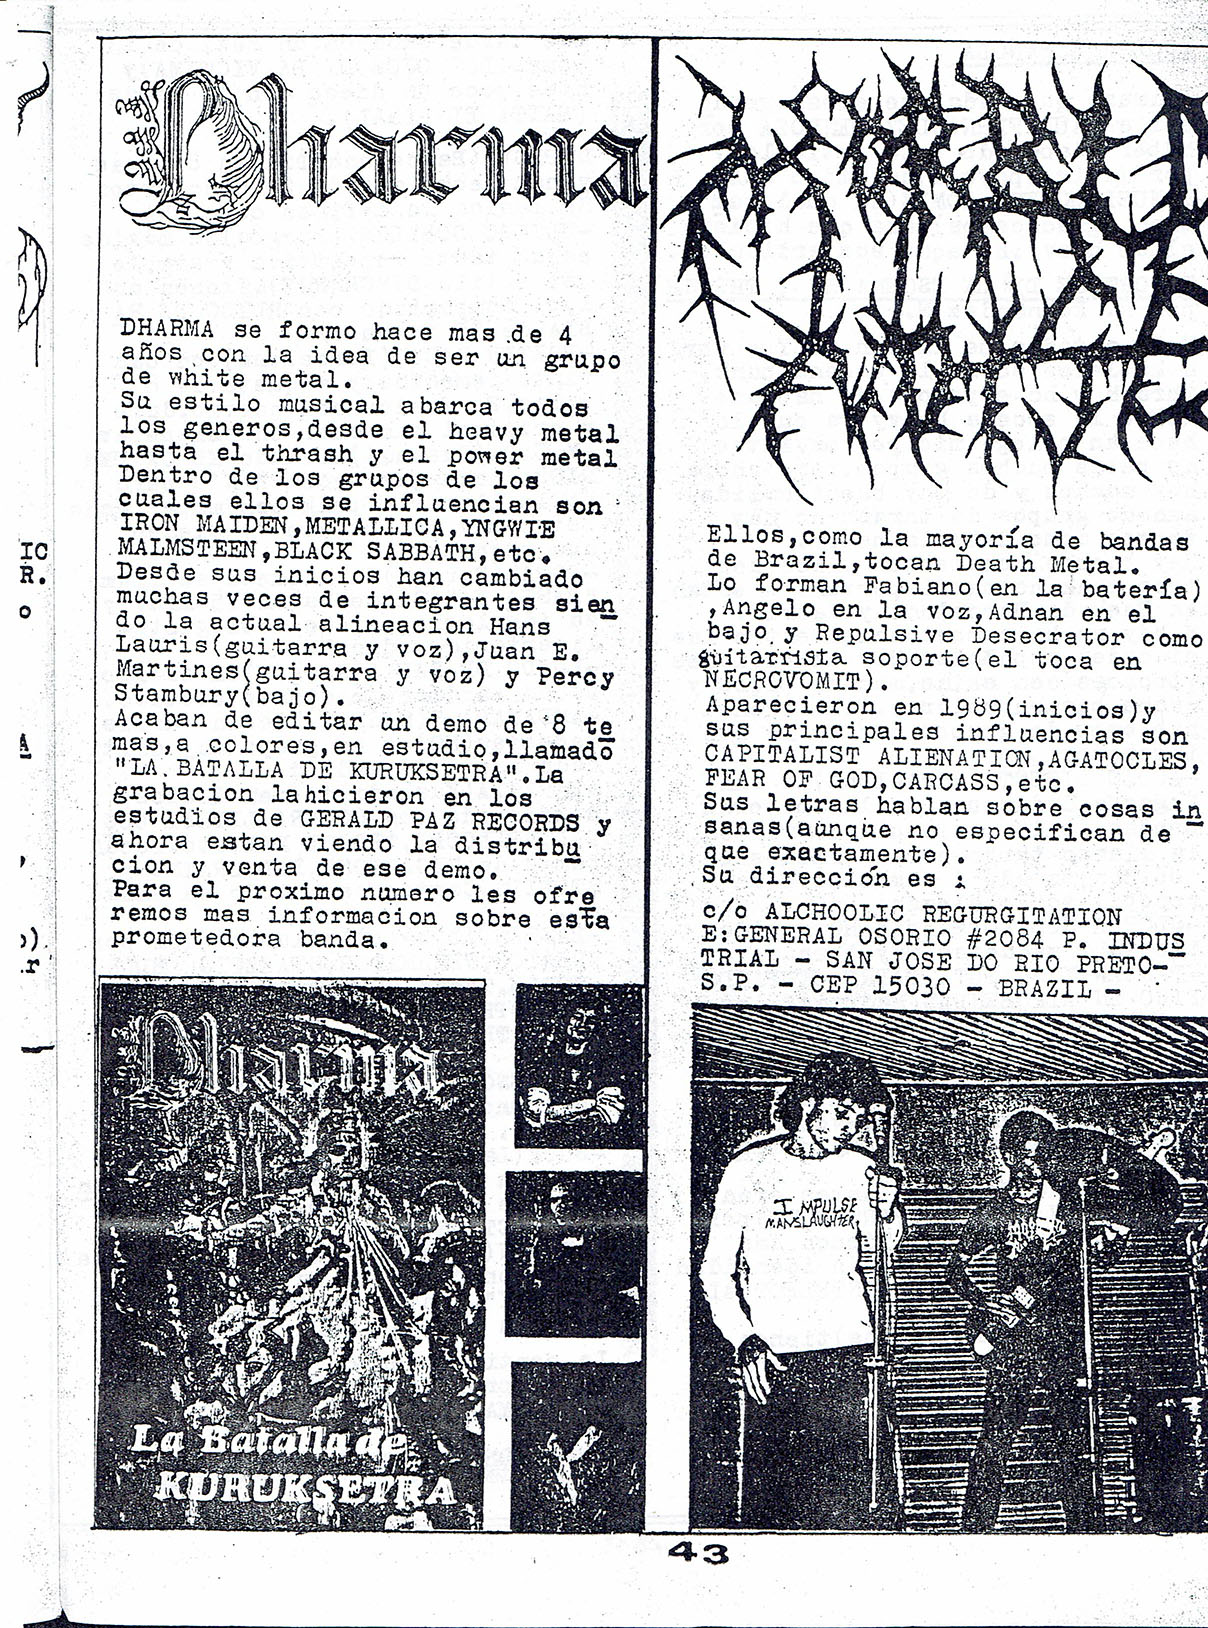 IC
R.
o
A
,
o).
r
Dharma
DHARMA se formo hace mas de 4
años con la idea de ser un grupo
de white metal.
Su estilo musical abarca todos
los generos,desde el heavy metal
hasta el thrash y el power metal
Dentro de los grupos de los
cuales ellos se influencian son
IRON MAIDEN,METALLICA,YNGWIE
MALMSTEEN,BLACK SABBATH,etc.
Desde sus inicios han cambiado
muchas veces de integrantes sien
do la actual alineacion Hans
Lauris(guitarra y voz),Juan E.
Martines(guitarra y voz) y Percy
Stambury(bajo).
Acaban de editar un demo de 8 te
mas,a colores,en estudio,llamado
"LA BATALLA DE KURUKSETRA".La
grabacion lahicieron en los
estudios de GERALD PAZ RECORDS y
ahora estan viendo la distribu
cion y venta de ese demo.
Para el proximo numero les ofre
remos mas informacion sobre esta
prometedora banda.
Dharma
La Batalla de
KURUKSETRA
Ellos,como la mayoría de bandas
de Brazil,tocan Death Metal.
Lo forman Fabiano(en la batería)
,Angelo en la voz,Adnan en el
bajo y Repulsive Desecrator como
guitarrista soporte(el toca en
NECROVOMIT).
Aparecieron en 1989(inicios)y
sus principales influencias son
CAPITALIST ALIENATION,AGATOCLES,
FEAR OF GOD,CARCASS,etc.
Sus letras hablan sobre cosas in
sanas(aunque no especifican de
que exactamente).
Su dirección es :
c/o ALCHOOLIC REGURGITATION
E:GENERAL OSORIO #2084 P. INDUS
TRIAL - SAN JOSE DO RIO PRETO-
S.P. - CEP 15030 - BRAZIL -
IMPULSE
MANSLAUGHTER
43